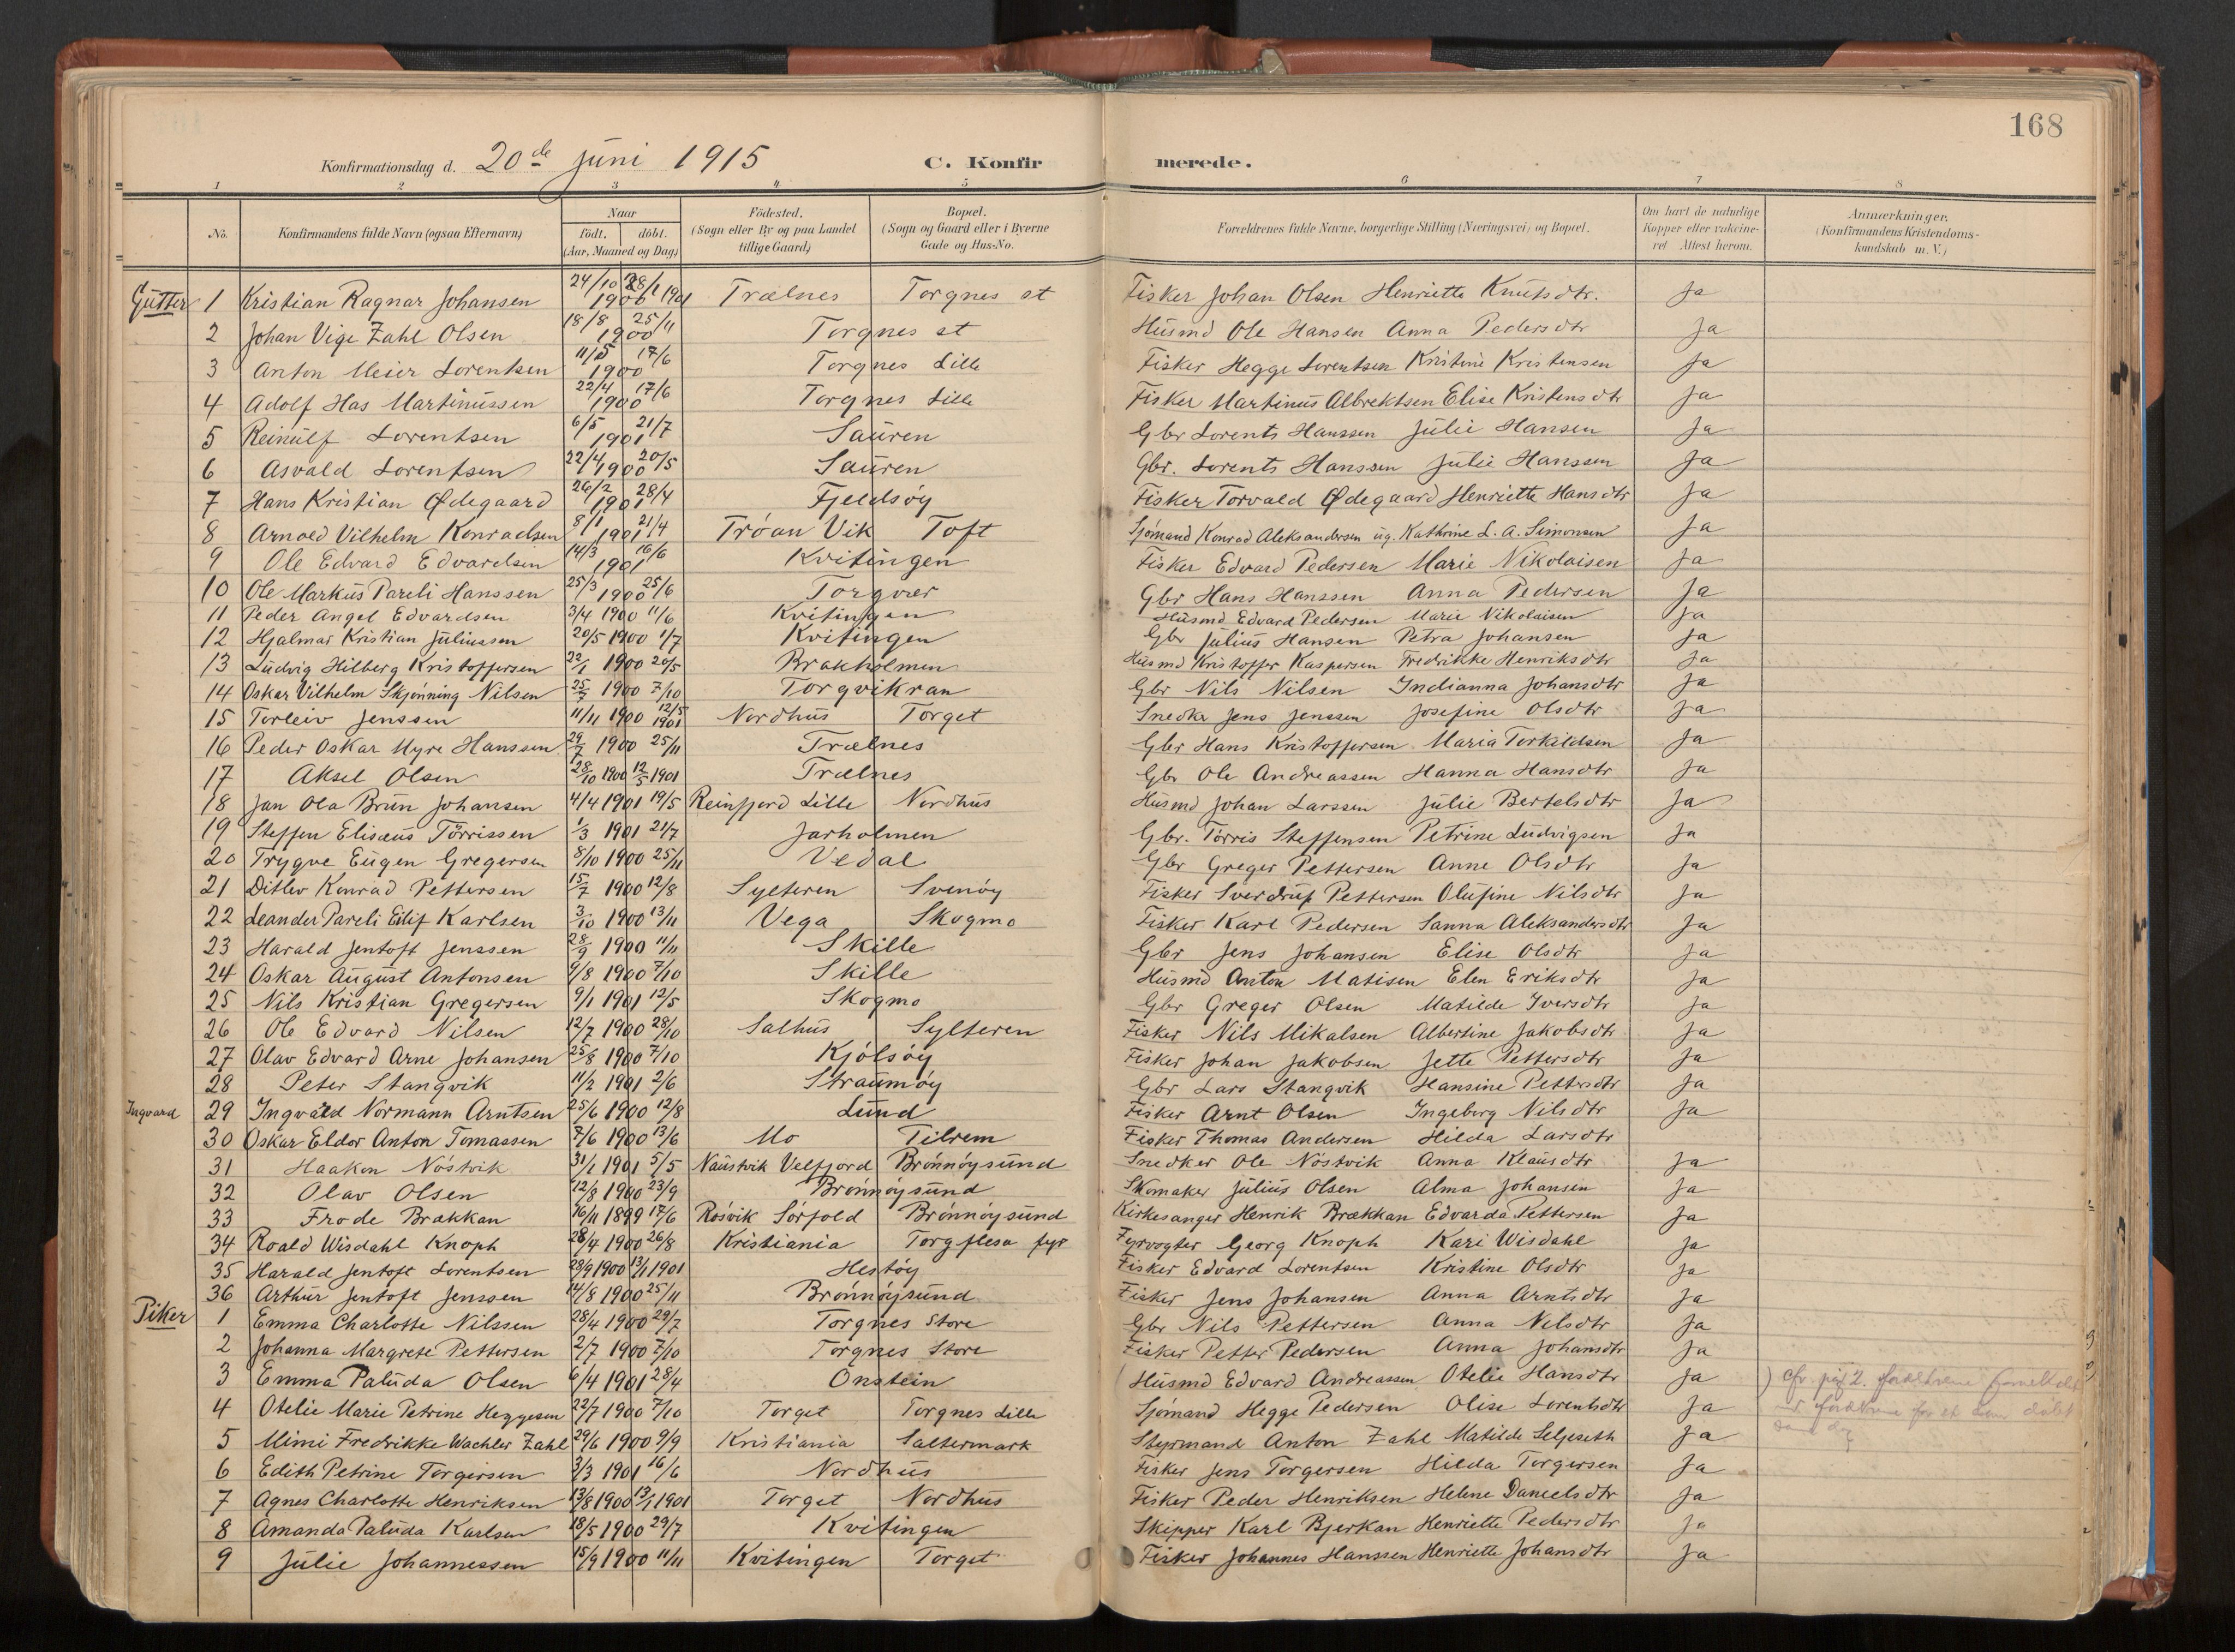 168
Konfirmationsdag d. 20de juni 1915 C. Konfirmerede.
1 2 3 4 5 6 7 8
No. Konfirmandens fulde Navn (ogsaa Efternavn) Naar Födt. döbt. (Aar, Maaned og Dag) Födested. (Sogn eller By og paa Landet tillige Gaard) Bopæl. (Sogn og Gaard eller i Byerne Gade og Hus-No. Forældrenes fulde Navne, borgerlige Stilling (Næringsvei) og Bopæl. Om havt de naturlige Kopper eller vaccineret Attest herom. Anmærkninger. (Konfirmandens Kristendomskundskab m. V.)
Gutter 1 Kristian Ragnar Johansen 24/10 1900 28/1 1901 Trælnes Torgnes st Fisker Johan Olsen Henriette Knutsdtr. Ja
2 Johan Vige Zahl Olsen 18/8 25/11 1900 Torgnes st Husmd Ole Hansen Anna Pedersdtr Ja
3 Anton Meier Lorentsen 11/5 17/6 1900 Torgnes Lille Fisker Hegge Lorentsen Kristine Kristensen Ja
4 Adolf Has Martinussen 22/4 17/6 1900 Torgnes Lille Fisker Martinus Albrektsen Elise Kristensdtr Ja
5 Reinulf Lorentsen 6/5 21/7 1901 Sauren Gbr Lorents Hanssen Julie Hansen Ja
6 Asvald Lorentsen 22/4 1900 20/5 Sauren Gbr. Lorents Hanssen Julie Hanssen Ja
7 Hans Kristian Ødegaard 26/2 28/4 1901 Fjeldsöy Fisker Torvald Ødegaard Henriette Hansdtr Ja
8 Arnold Vilhelm Konradsen 8/1 21/4 1901 Tröan Vik Toft Sjömand Konrad Aleksandersen ug. Kathrine L. A. Simonsen Ja
9 Ole Edvard Edvardsen 14/3 16/6 1901 Kvitingen Fisker Edvard Pedersen Marie Nikolaisen Ja
10 Ole Markus Pareli Hanssen 25/3 1900 25/6 Torgvær Gbr Hans Hanssen Anna Pedersen Ja
11 Peder Angel Edvardsen 3/4 1900 11/6 Kvitingen Husmd Edvard Pedersen Marie Nikolaisen Ja
12 Hjalmar Kristian Juliussen 20/5 1900 1/7 Kvitingen Gbr Julius Hansen Petra Johansen Ja
13 Ludvig Hilberg Kristoffersen 22/1 1900 20/5 Brakholmen Husmd Kristoffer Kaspersen Fredrikke Henriksdtr Ja
14 Oskar Vilhelm Skjönning Nilsen 25/7 1900 7/10 Torgvikran Gbr Nils Nilsen Indianna Johansdtr Ja
15 Torleiv Jenssen 11/11 1900 12/5 1901 Nordhus Torget Snedker Jens Jenssen Josefine Olsdtr Ja
16 Peder Oskar Myre Hanssen 29/7 1900 25/11 Trælnes Gbr Hans Kristoffersen Maria Torkildsen Ja
17 Aksel Olsen 28/10 1900 12/5 1901 Trælnes Gbr Ole Andreassen Hanna Hansdtr Ja
18 Jan Ola Brun Johansen 4/4 1901 19/5 Reinfjord Lille Nordhus Husmd Johan Larssen Julie Bertelsdtr Ja
19 Steffen Elisæus Törrissen 1/3 1901 21/7 Jarholmen Gbr. Törris Steffensen Petrine Ludvigsen Ja
20 Trygve Eugen Gregersen 8/10 1900 25/11 Vedal Gbr Greger Pettersen Anne Olsdtr Ja
21 Ditlev Konrad Pettersen 15/7 1900 12/8 Sylteren Svenöy Fisker Sverdrup Pettersen Olufine Nilsdtr Ja
22 Leander Pareli Eilif Karlsen 3/10 1900 13/11 Vega Skogmo Fisker Karl Pedersen Sanna Aleksandersdtr Ja
23 Harald Jentoft Jenssen 28/9 1900 11/11 Skille Gbr Jens Johansen Elise Olsdtr Ja
24 Oskar August Antonsen 9/8 1900 7/10 Skille Husmd Anton Matisen Elen Eriksdtr Ja
25 Nils Kristian Gregersen 9/1 1901 12/5 Skogmo Gbr Greger Olsen Matilde Iversdtr Ja
26 Ole Edvard Nilsen 12/7 1900 28/10 Salhus Sylteren Fisker Nils Mikalsen Albertine Jakobsdtr Ja
27 Olav Edvard Arne Johansen 25/8 1900 7/10 Kjölsöy Fisker Johan Jakobsen Jette Pettersdtr Ja
28 Peter Stangvik 11/2 1901 2/6 Straumöy Gbr Lars Stangvik Hansine Pettersdtr Ja
Ingvard 29 Ingvald Normann Arntsen 25/6 1900 12/8 Lund Fisker Arnt Olsen Ingeborg Nilsdtr Ja
30 Oskar Eldor Anton Tomassen 7/6 1900 13/6 Mo Tilrem Fisker Thomas Andersen Hilda Larsdtr
31 Haakon Nöstvik 31/1 1901 5/5 Naustvik Velfjord Brönnöysund Snedker Ole Nöstvik Anna Klausdtr Ja
32 Olav Olsen 12/8 1900 23/9 Brönnöysund Skomaker Julius Olsen Alma Johansen Ja
33 Frode Brækkan 16/11 1899 17/6 Rösvik Sörfold Brönnöysund Kirkesanger Henrik Brækkan Edvarda Pettersen Ja
34 Roald Wisdahl Knoph 28/4 1900 26/8 Kristiania Torgflesa fyr Fyrvogter Georg Knoph Kari Wisdahl Ja
35 Harald Jentoft Lorentsen 28/9 1900 13/1 1901 Hestöy Fisker Edvard Lorentsen Kristine Olsdtr Ja
36 Arthur Jentoft Jenssen 14/8 1900 25/11 Brönnöysund Fisker Jens Johansen Anna Arntsdtr Ja
Piker 1 Emma Charlotte Nilssen 28/4 1900 29/7 Torgnes Store Gbr Nils Pettersen Anna Nilsdtr Ja
2 Johanna Margrete Pettersen 2/7 1900 7/10 Torgnes Store Fisker Petter Pedersen Anna Johansdtr Ja
3 Emma Paluda Olsen 6/4 1901 28/4 Onstein Husmd Edvard Andreassen Otelie Hansdtr Ja
4 Otelie Marie Petrine Heggesen 22/7 1900 7/10 Torget Torgnes Lille Sjömand Hegge Pedersen Olise Lorentsdtr Ja
5 Mimi Fredrikke Wachler Zahl 29/6 1900 9/9 Kristiania Saltermark Styrmand Anton Zahl Matilde Seljeseth Ja
6 Edith Petrine Torgersen 3/3 1901 16/6 Nordhus Fisker Jens Torgersen Hilda Torgersen Ja
7 Agnes Charlotte Henriksen 13/8 1900 13/1 1901 Torget Nordhus Fisker Peder Henriksen Helene Danielsdtr Ja
8 Amanda Paluda Karlsen 18/5 1900 29/7 Kvitingen Skipper Karl Bjerkan Henriette Pedersdtr Ja
9 Julie Johannessen 15/9 1900 11/11 Kvitingen Torget Fisker Johannes Hanssen Henriette Johansdtr Ja